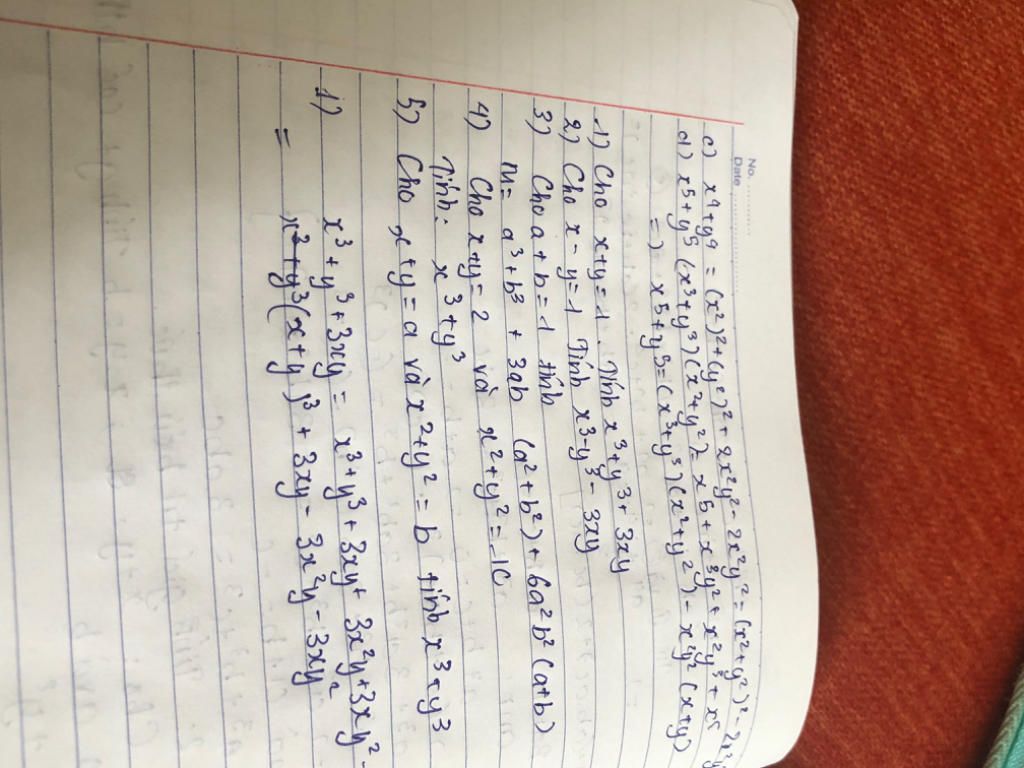 No. ............
Date ............
c) x⁴+y⁹ = (x²)²+(y²)²+2x²y²-2x²y²=(x²+y²)²-2x²y
d) x⁵+y⁵ (x³+y³)(x²+y²)= x⁵+x³y²+x²y³+x⁵
=) x⁵+y⁵=(x³+y³)(x²+y²)-x²y²(x+y)
1) Cho x+y=1. Tính x³+y³+3xy
2) Cho x-y=1 Tính x³-y³-3xy
3) Cho a+b=1 tính
M= a³+b³+3ab (a²+b²)+6a²b²(a+b)
4) Cho x+y=2 và x²+y²=10
Tính: x³+y³
5) Cho x+y=a và x²+y²=b tính x³+y³
1) x³+y³+3xy= x³+y³+3xy+3x²y+3xy²-
= x³+y³(x+y)³+3xy-3x²y-3xy²